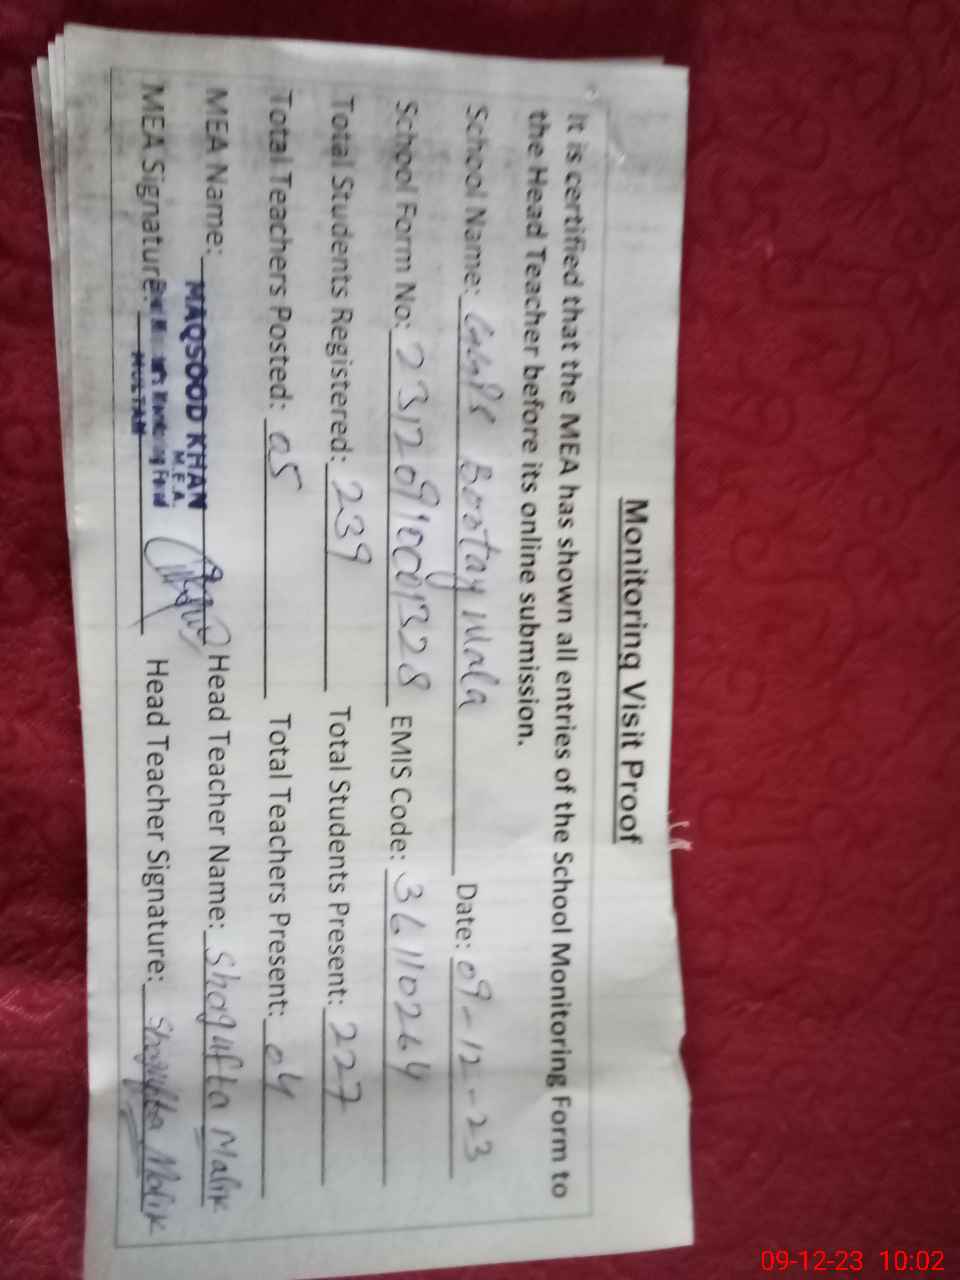 Monitoring Visit Proof
It is certified that the MEA has shown all entries of the School Monitoring Form to
the Head Teacher before its online submission.
School Name: GGPS Bootay Wala Date: 09-12-23
School Form No: 2312091001328 EMIS Code: 36110264
Total Students Registered: 239 Total Students Present: 227
Total Teachers Posted: 05 Total Teachers Present: 04
MEA Name: MAQSOOD KHAN Head Teacher Name: Shagufta Malik
M.E.A.
MEA Signature: MULTAN Head Teacher Signature: Shagufta Malik
09-12-23 10:02